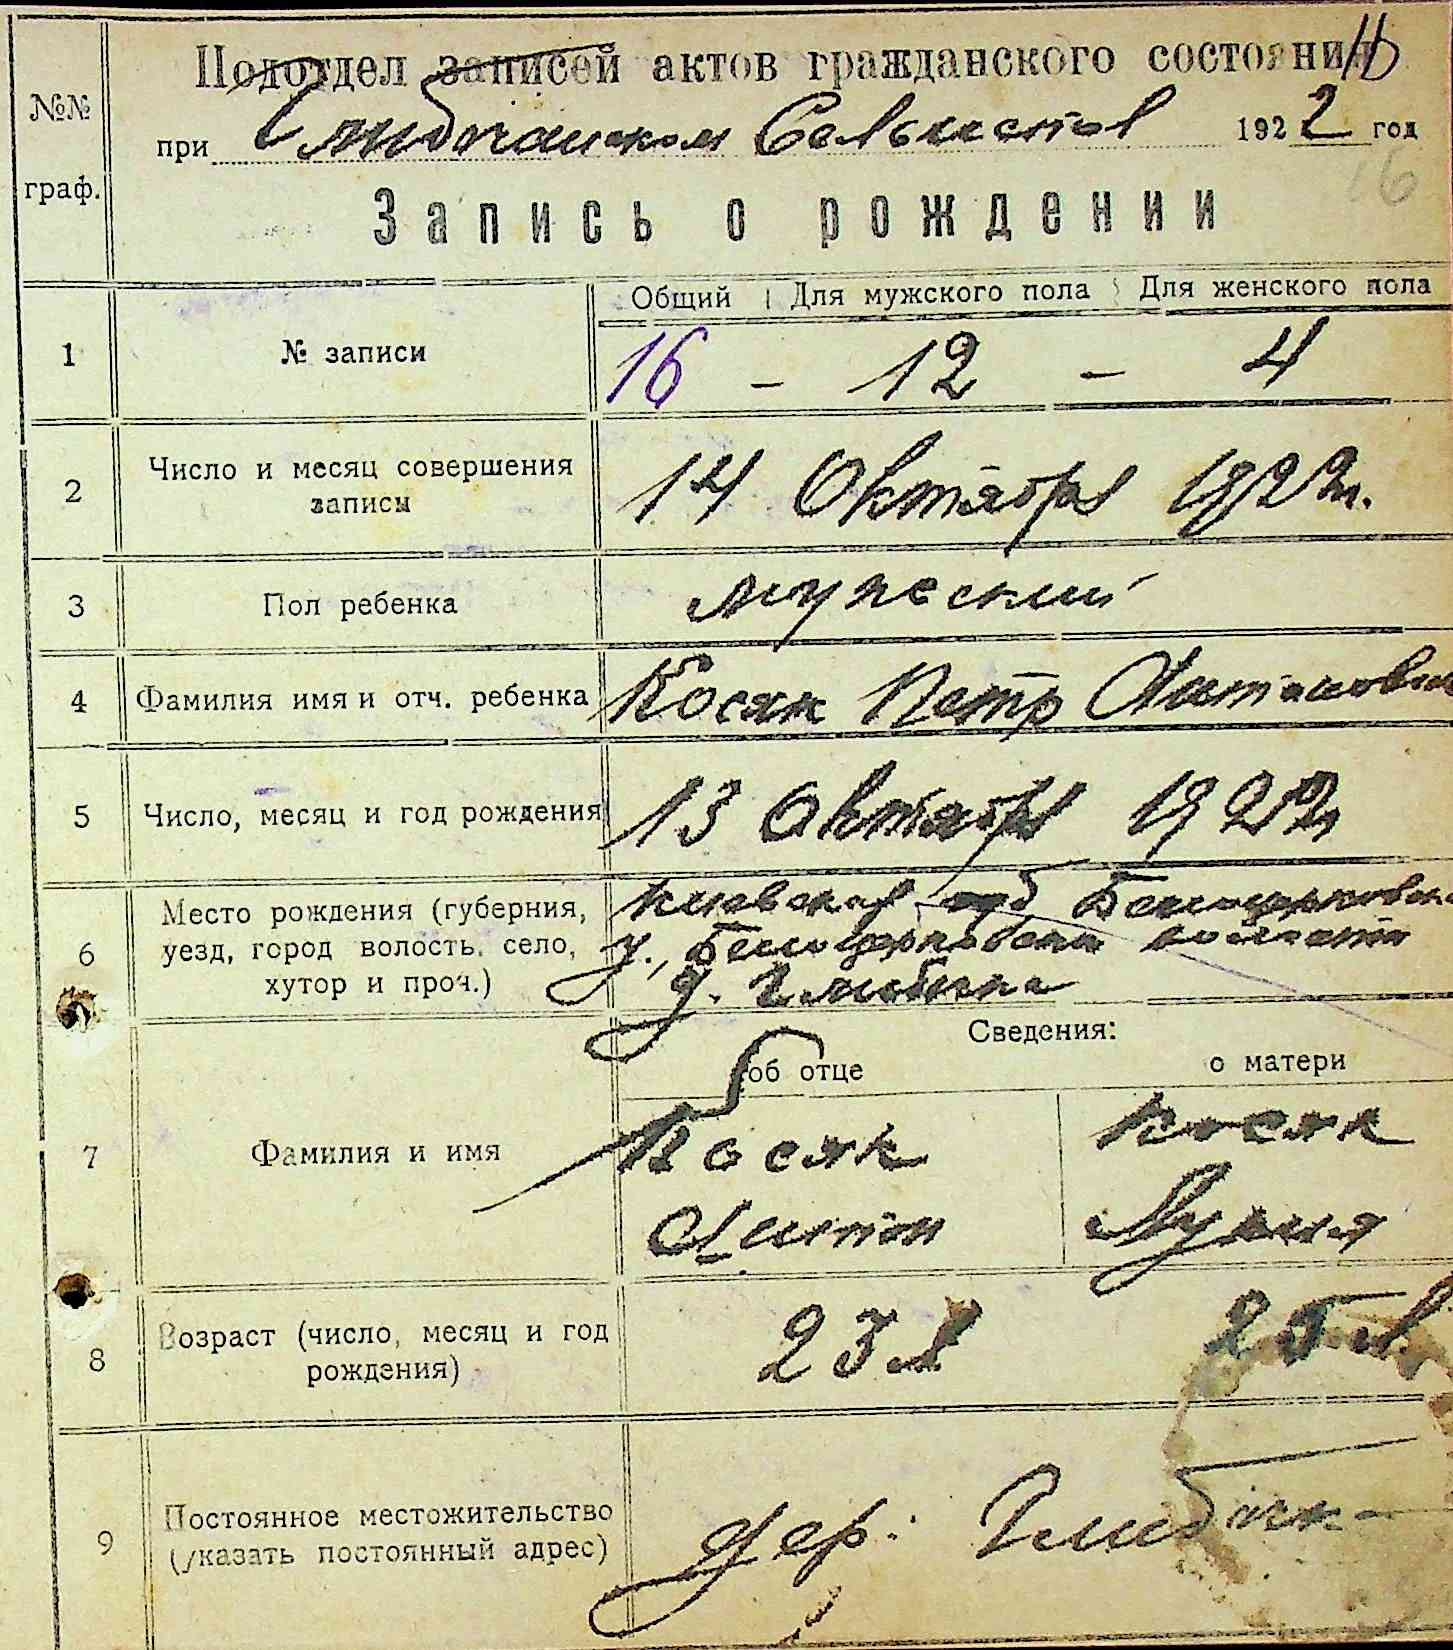 Подотдел записей актов гражданского состояния
№№
при Глибчанском 1922 год
граф.
16
Запись о рождении
Общий Для мужского пола Для женского пола
1 № записи 16 - 12 - 4
2 Число и месяц совершения 14 Октября 1922 г.
записи
3 Пол ребенка мужеский
4 Фамилия имя и отч. ребенка Косяк Петр Антонович
5 Число, месяц и год рождения 13 Октября 1922 г
Место рождения (губерния, Киевской губ Белоцерковск
6 уезд, город волость, село, у., Белоцерковской волости
хутор и проч.) д. Глибичка
Сведения:
об отце о матери
7 Фамилия и имя Косяк Косяк
Антон Лукия
8 Возраст (число, месяц и год 23 л 25 л
рождения)
9 Постоянное местожительство дер. Глибичка
(указать постоянный адрес)